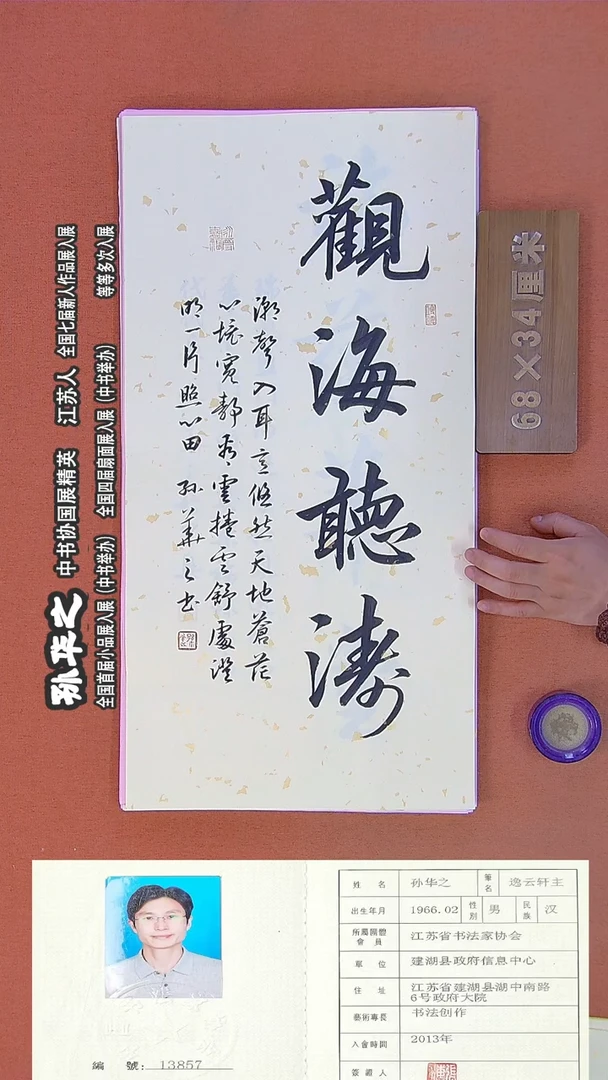 觀海聽濤
潮聲入耳意悠然天地蒼茫
心境寬靜看雲捲雲舒處澄
明一片照心田 孫華之书
68×34厘米
孙华之 中书协国展精英 江苏人 全国七届新人作品展入展
全国首届小品展入展（中书举办） 全国四届扇面展入展（中书举办） 等等多次入展
姓名 孙华之 筆名 逸云轩主
出生年月 1966.02 性别 男 民族 汉
所屬團體會員 江苏省书法家协会
單位 建湖县政府信息中心
住址 江苏省建湖县湖中南路6号政府大院
藝術專長 书法创作
入會時間 2013年
簽證人
編號: 13857